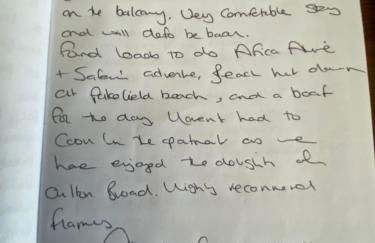 on the balcony. Very Comfortable stay
and will defo be back.
found loads to do Africa Alive
+ Safari adventure, beach hut down
at Pakefield beach, and a boat
for the day. Havent had to
Cook in the as we
have enjoyed the delights of
Oulton Broad. Highly recommend